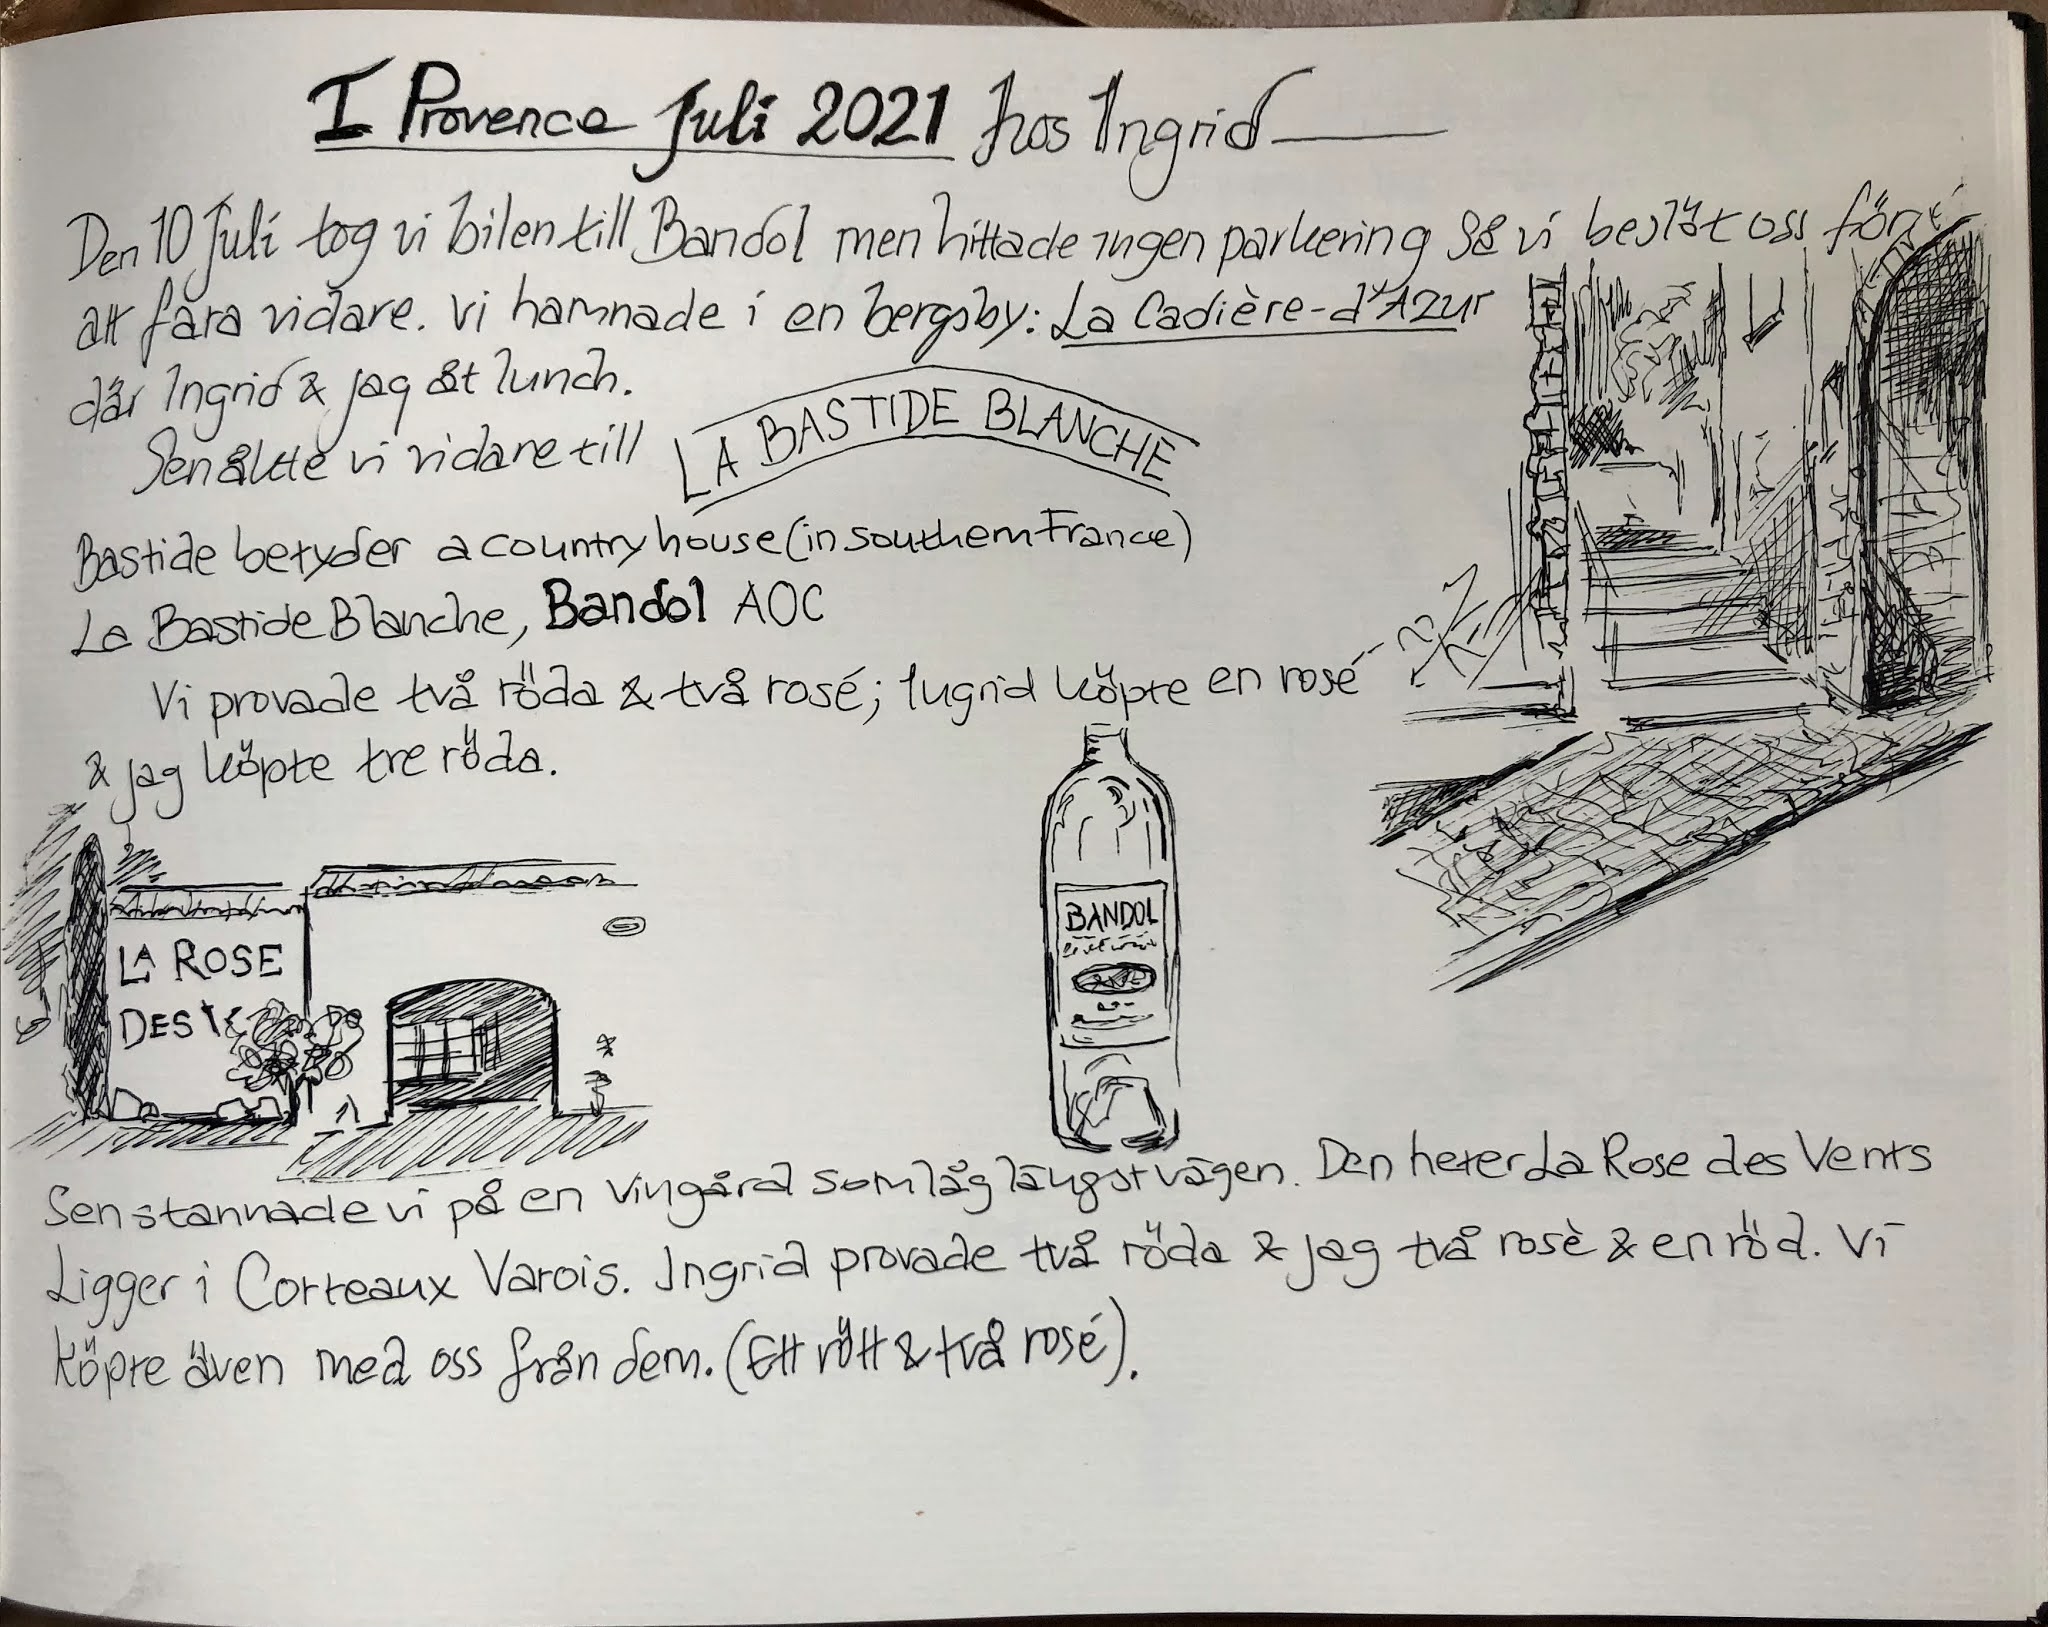 I Provence Juli 2021 hos Ingrid
Den 10 Juli tog vi bilen till Bandol men hittade ingen parkering så vi beslöt oss för
att fara vidare. Vi hamnade i en bergsby: La Cadière-d'Azur
där Ingrid & jag åt lunch.
Sen åkte vi vidare till
LA BASTIDE BLANCHE
Bastide betyder a country house (in southern France)
La Bastide Blanche, Bandol AOC
Vi provade två röda & två rosé; Ingrid köpte en rosé
& jag köpte tre röda.
BANDOL
LA ROSE
DES
Sen stannade vi på en vingård som låg längst vägen. Den heter La Rose des Vents
Ligger i Corteaux Varois. Ingrid provade två röda & jag två rosè & en röd. Vi
köpte även med oss från dem. (Ett rött & två rosé).